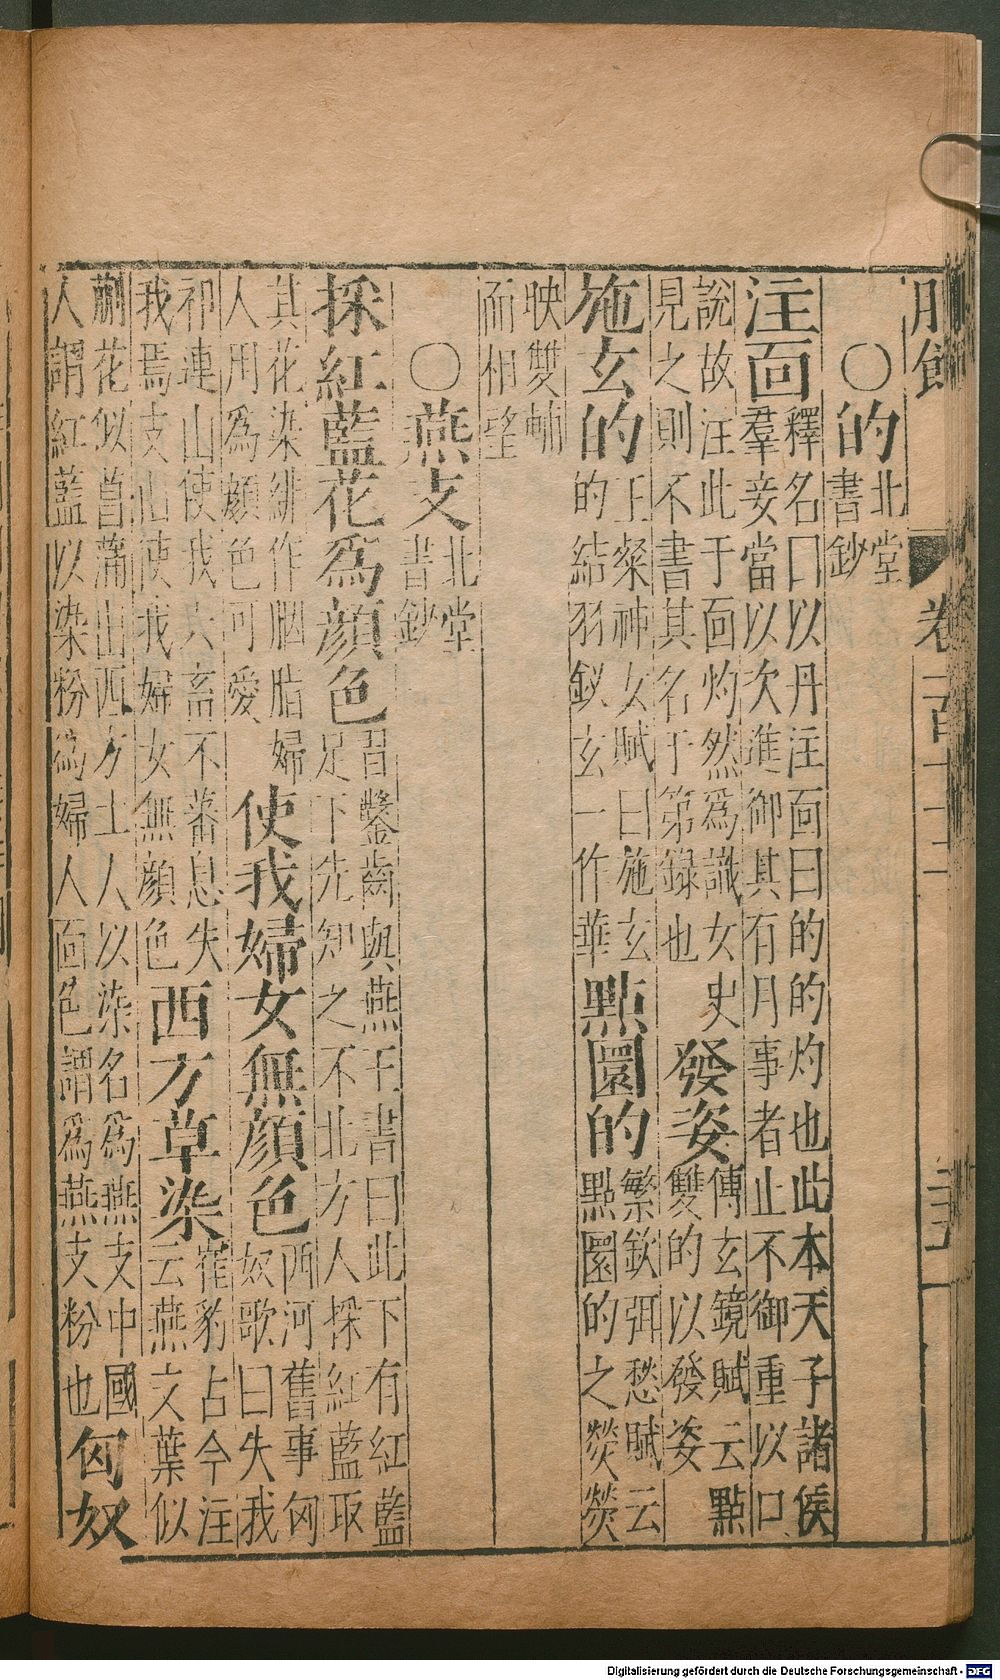 服飾 卷二百十二
○的 北堂
書鈔
注面 釋名曰以丹注面曰的的灼也此本天子諸侯
羣妾當以次進御其有月事者止不御重以口
說故注此于面灼然為識女史
見之則不書其名于第錄也
發姿 傅玄鏡賦云點
雙的以發姿
施玄的 王粲神女賦曰施玄
的結羽釵玄一作華
點圜的 繁欽弭愁賦云
點圜的之熒熒
映雙輔
而相望
○燕支 北堂
書鈔
採紅藍花為顏色 習鑿齒與燕王書曰此下有紅藍
足下先知之不北方人採紅藍取
其花染緋作胭脂婦
人用為顏色可愛
使我婦女無顏色 西河舊事匈
奴歌曰失我
祁連山使我六畜不蕃息失
我焉支山使我婦女無顏色
西方草染 崔豹古今注
云燕支葉似
薊花似菖蒲出西方土人以染名為燕支中國
人謂紅藍以染粉為婦人面色謂為燕支粉也
匈奴
Digitalisierung gefördert durch die Deutsche Forschungsgemeinschaft - DFG